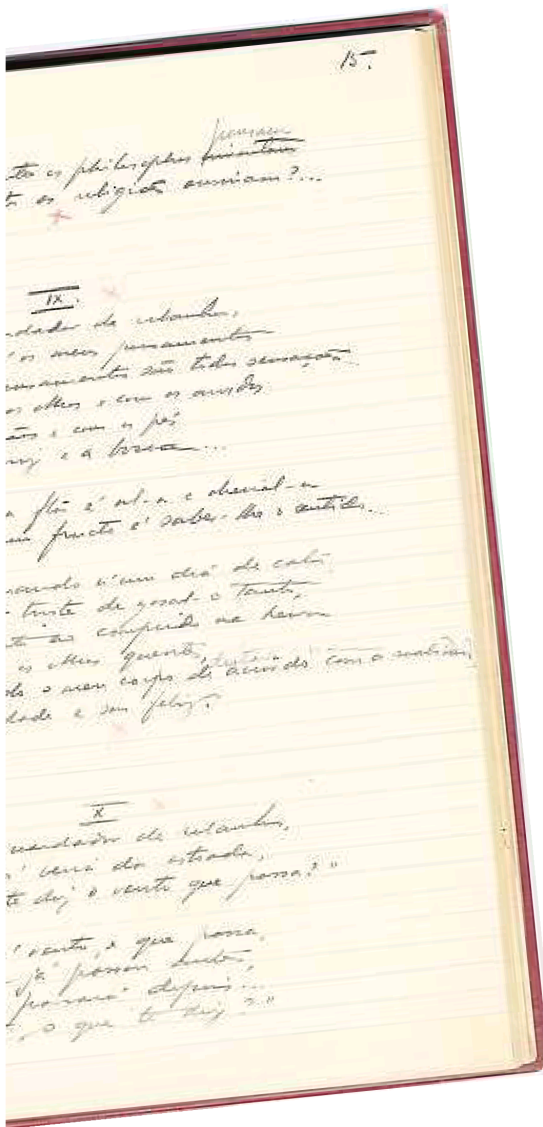 15.
pensam
to os philosophos
to as religiões ensinam?...
IX.
dador de rebanhos,
é os meus pensamentos
nsamentos são todos sensações.
os olhos e com os ouvidos
ãos e com os pés
riz e a bocca...
a flôr é vel-a e cheiral-a
um fructo é saber-lhe o sentido...
quando n'um dia de calor
triste de gosal-o tanto,
to ao comprido na herva
os olhos quentes,
do o meu corpo de accordo com a realidade,
dade e sou feliz.
X
uardador de rebanhos,
beira da estrada,
te diz o vento que passa?"
é vento, e que passa,
já passou antes,
passará depois...
o que te diz?"